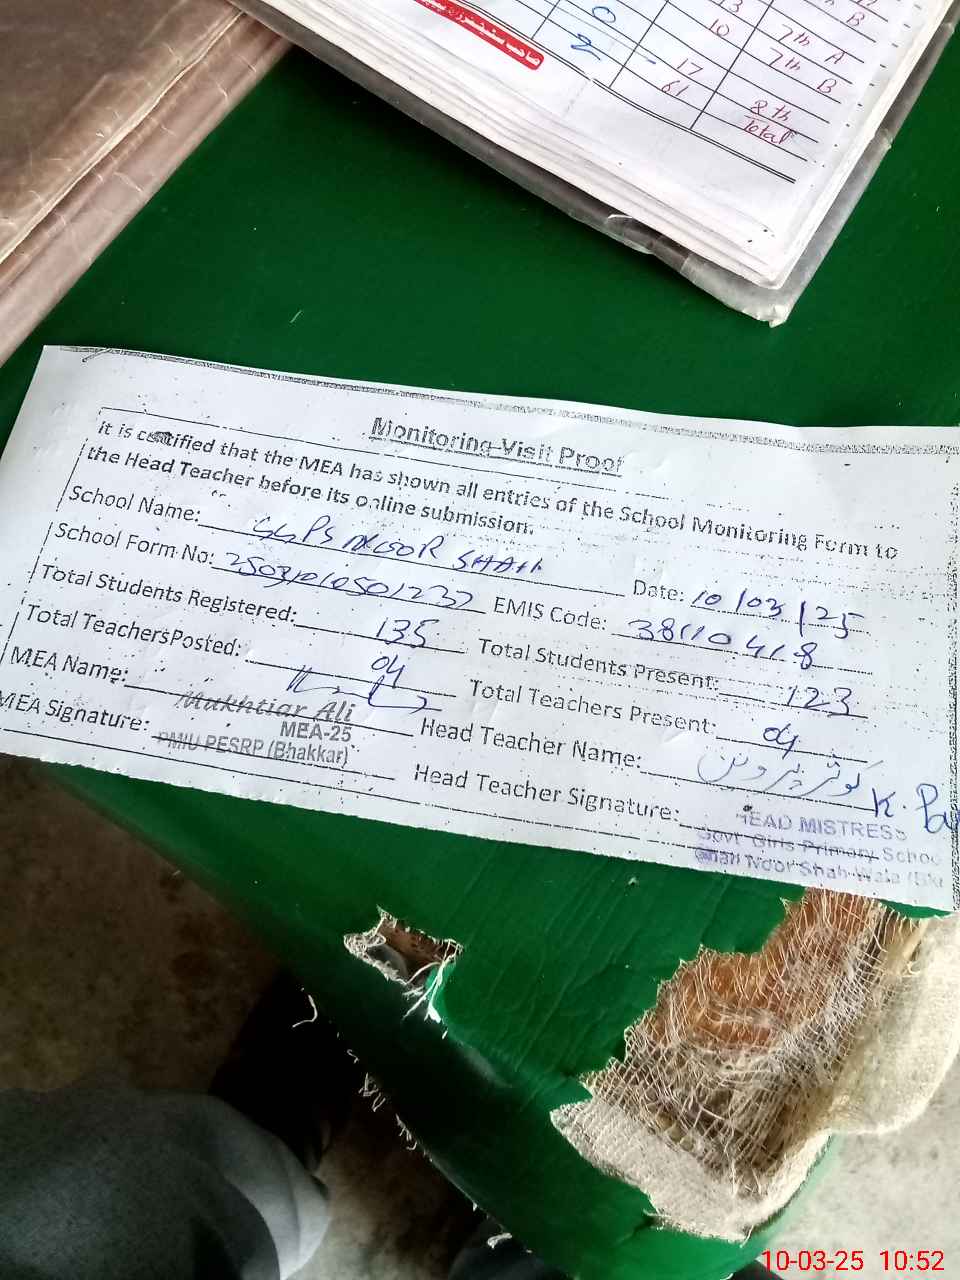 13 B
0 10 7th A
2 - 17 7th B
61 8th
Total
Monitoring Visit Proof
it is certified that the MEA has shown all entries of the School Monitoring Form to
the Head Teacher before its online submission.
School Name: GGPS NOOR SHAH Date: 10/03/25
School Form No: EMIS Code: 38110418
Total Students Registered: 135 Total Students Present: 123
Total Teachers Posted: 04 Total Teachers Present: 04
MEA Name: Mukhtiar Ali Head Teacher Name: کوثر پروین
MEA-25
MEA Signature: PMIU PESRP (Bhakkar) Head Teacher Signature: K. Pa
HEAD MISTRESS
Govt Girls Primary School
Noor Shah Wala
10-03-25 10:52